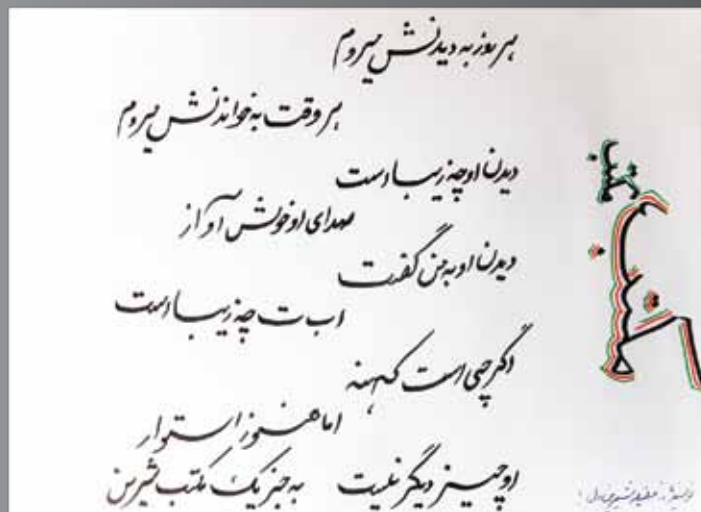 هر روز به دیدنش میروم
هر وقت به خواندنش میروم
دیدن او چه زیبا است
صدای او خوش آواز
دیدن او به من گفت
ا ب ت چه زیبا است
اگر چی است کهنه
اما هنوز استوار
او چیز دیگر نیست به جز یک مکتب شیرین
مکتب